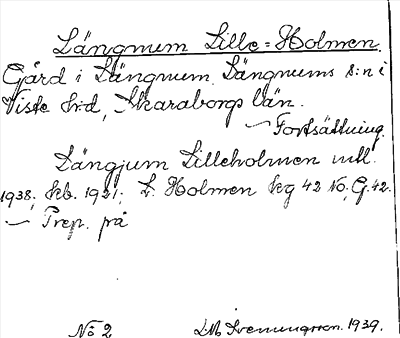 Längnum Lille-Holmen.
Gård i Längnum. Längnums s:n i
Viste h:d, Skaraborgs län.
— Fortsättning.
Längjum Lilleholmen utt.
1938; kb. 1921; L. Holmen kg 42 NO, G. 42.
— Prep. på
No 2 1939.